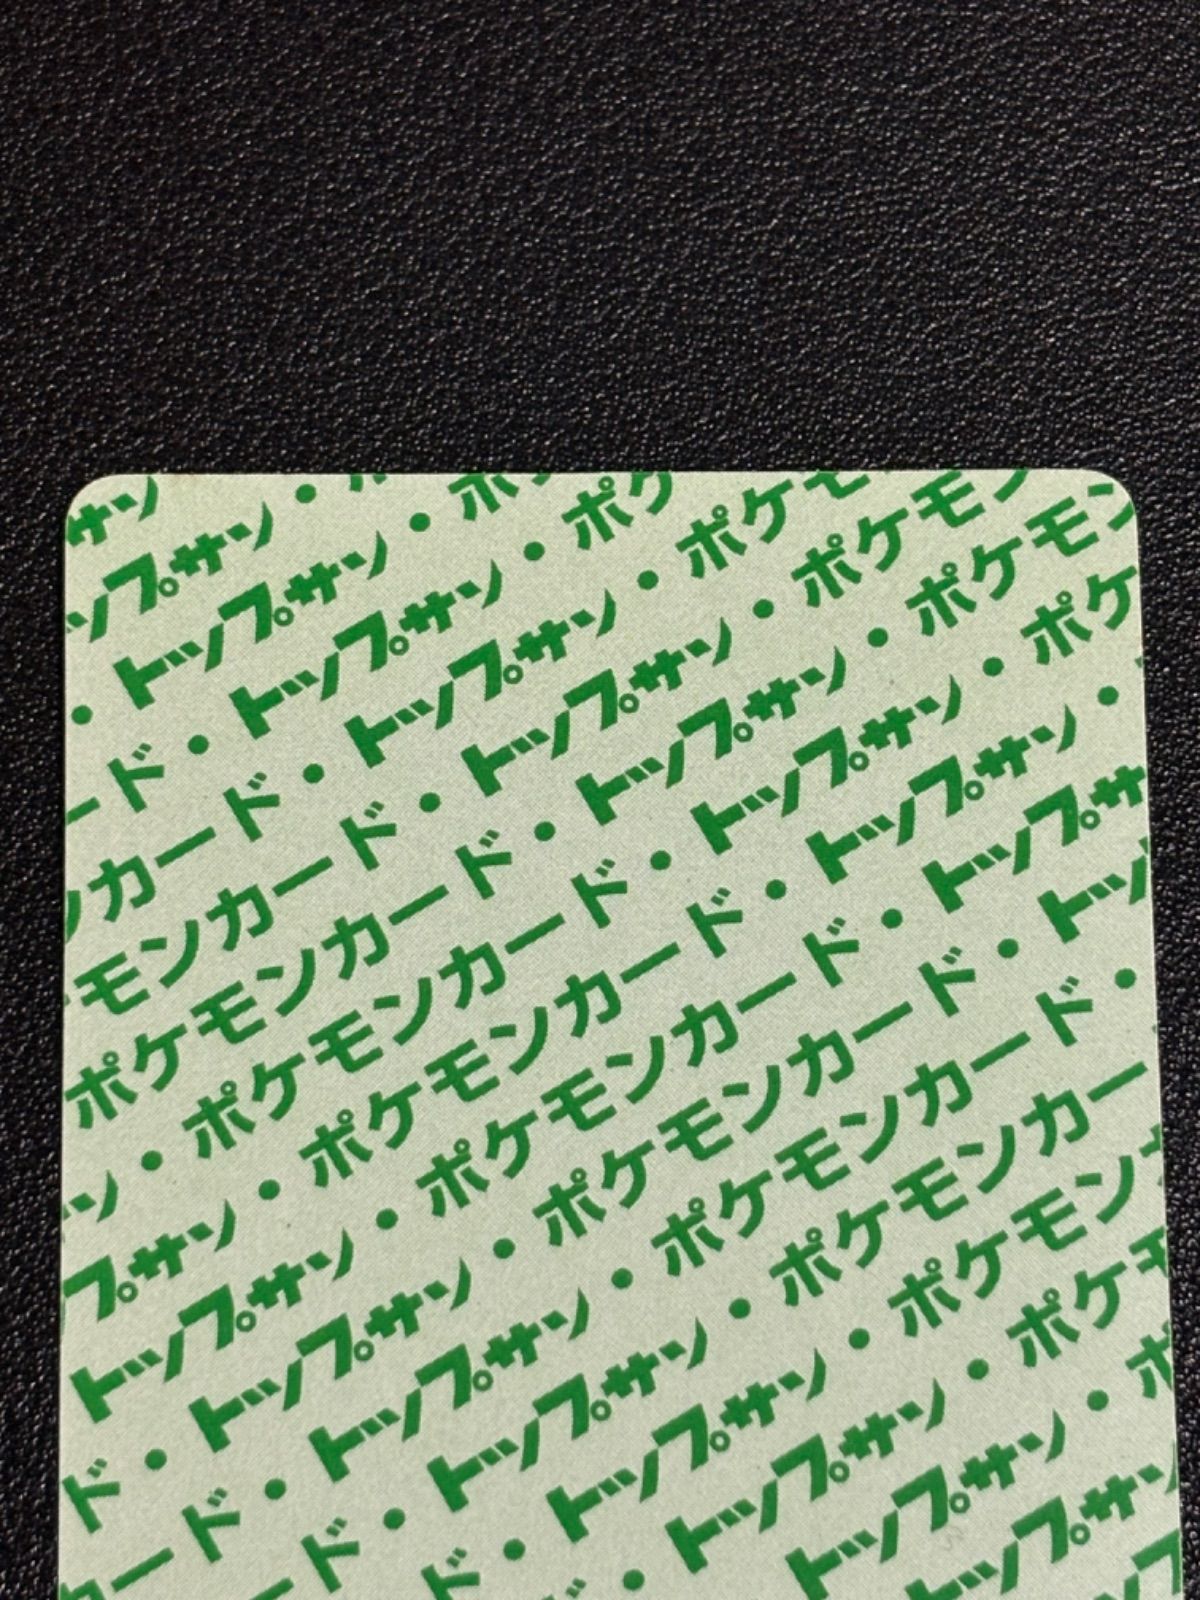 サン
ップサン・ポ
・トップサン・ポケ
ード・トップサン・ポケ
ンカード・トップサン・ポケモ
モンカード・トップサン・ポケモン
ポケモンカード・トップサン・ポケモン
ン・ポケモンカード・トップサン・ポケ
プサン・ポケモンカード・トップサン・
トップサン・ポケモンカード・トップサ
ド・トップサン・ポケモンカード・トッ
カード・トップサン・ポケモンカード・
ド・トップサン・ポケモンカー
ド・トップサン・ポケモン
・トップサン・ポケモ
トップサン・ポ
トップサン